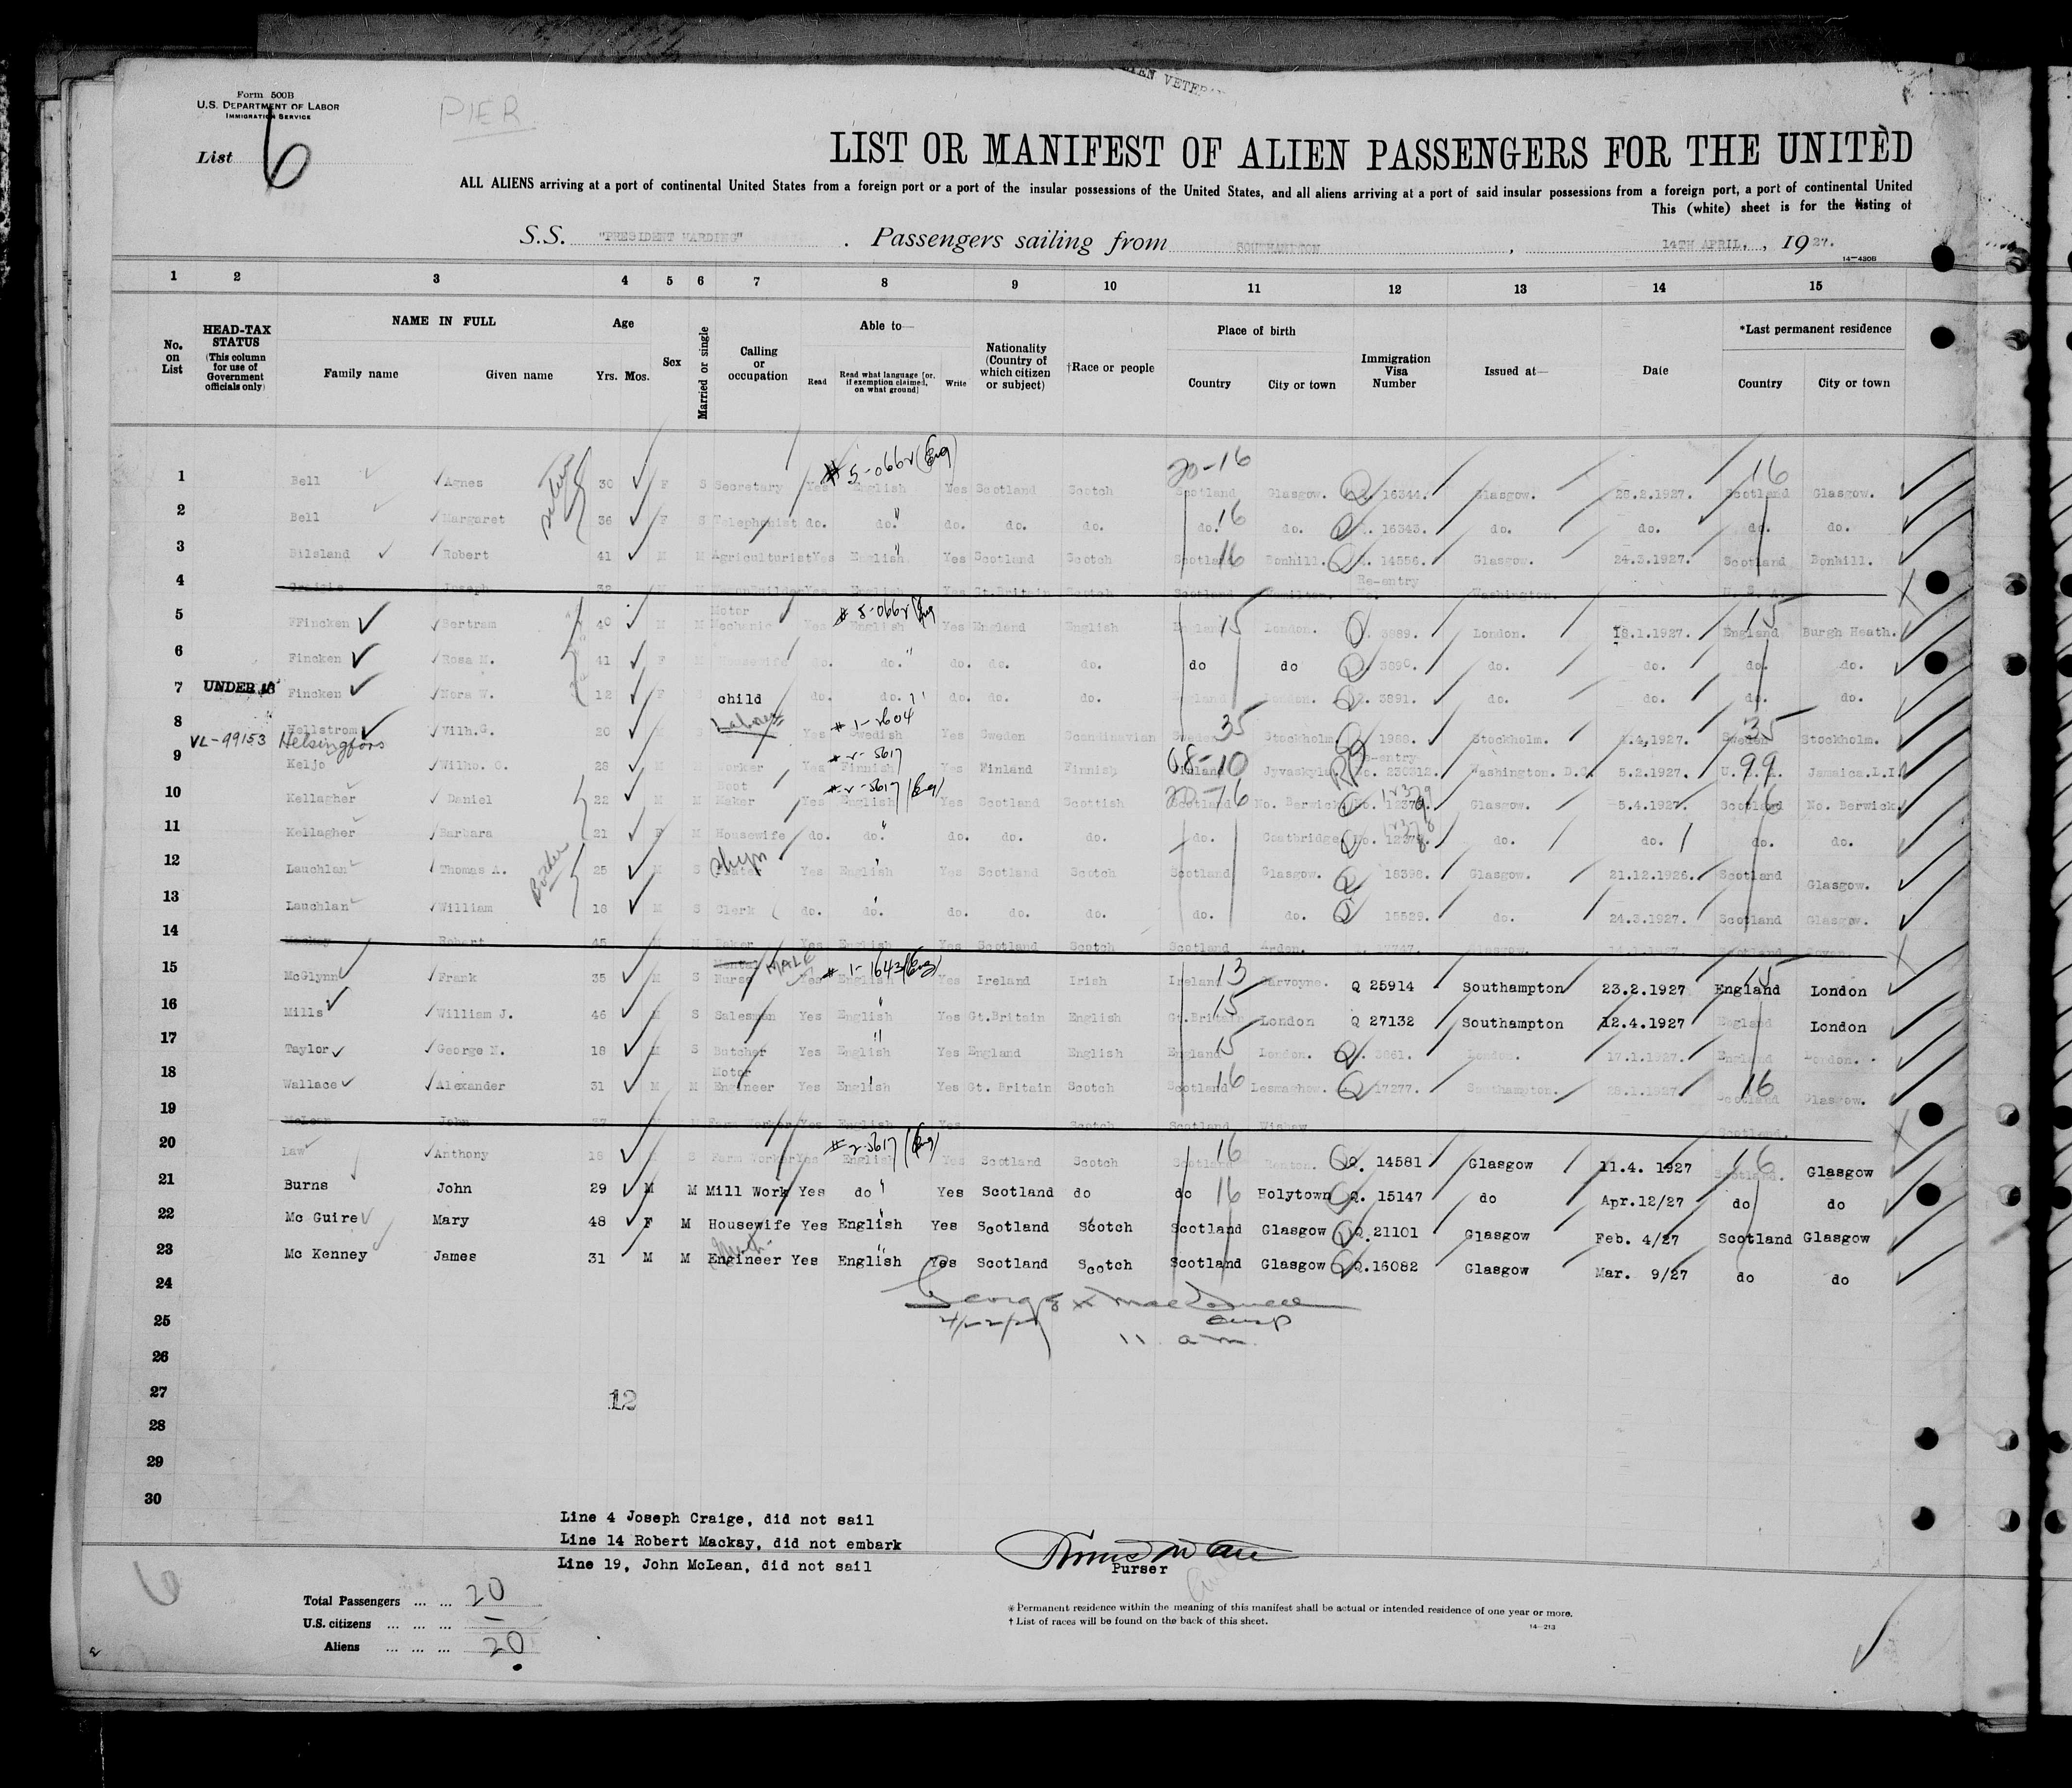 ALIEN VETERAN
Form 500B
U.S. DEPARTMENT OF LABOR
IMMIGRATION SERVICE
PIER
List 6
LIST OR MANIFEST OF ALIEN PASSENGERS FOR THE UNITED
ALL ALIENS arriving at a port of continental United States from a foreign port or a port of the insular possessions of the United States, and all aliens arriving at a port of said insular possessions from a foreign port, a port of continental United
This (white) sheet is for the listing of
S.S. "PRESIDENT HARDING" . Passengers sailing from SOUTHAMPTON , 14TH APRIL, , 1927.
14—430B
1 2 3 4 5 6 7 8 9 10 11 12 13 14 15
No. on List
HEAD-TAX STATUS (This column for use of Government officials only)
NAME IN FULL Family name Given name
Age Yrs. Mos.
Sex
Married or single
Calling or occupation
Able to— Read Read what language [or, if exemption claimed, on what ground] Write
Nationality (Country of which citizen or subject)
†Race or people
Place of birth Country City or town
Immigration Visa Number
Issued at—
Date
*Last permanent residence Country City or town
# 5-066r (Eng) 20-16 16
1 Bell Agnes 30 F S Secretary Yes English Yes Scotland Scotch Scotland Glasgow. Q 16344. Glasgow. 28.2.1927. Scotland Glasgow.
2 Bell Margaret 36 F S Telephonist do. do. do. do. do. do. 16 do. Q 16343. do. do. do. do.
3 Bilsland Robert 41 M M Agriculturist Yes English Yes Scotland Scotch Scotland 16 Bonhill. Q. 14856. Glasgow. 24.3.1927. Scotland Bonhill.
Re-entry
4 Joseph Yes English Yes Gt.Britain Scotch Scotland Washington. U.S.A.
Motor # 5-066r (Eng
5 FFincken Bertram 40 M M Mechanic Yes English Yes England English England 15 London. Q. 3889. London. 18.1.1927. England 15 Burgh Heath.
6 Fincken Rosa M. 41 F M Housewife do. do. do. do. do. do do Q 3890. do. do. do. do.
7 UNDER 16 Fincken Nora W. 12 F child do. do. do. do. do. England London. Q. 3891. do. do. do. do.
Laborer # 1-1604
8 Hellstrom Vilh.G. 20 Yes Swedish Yes Sweden Scandinavian Sweden 35 Stockholm. Q 1988. Stockholm. 4.4.1927. Sweden 35 Stockholm.
VL-99153 Helsingfors # 2-5617 Re-entry
9 Keljo Wilho. O. 28 M Worker Yes Finnish Yes Finland Finnish Finland 08-10 Jyvaskyla. No. 230312. Washington. D.C. 5.2.1927. U.S.A. 99 Jamaica.L.I.
Boot # 2-5617 (Eng)
10 Kellagher Daniel 22 M M Maker Yes English Yes Scotland Scottish Scotland 20-16 No. Berwick. No. 12379. Glasgow. 5.4.1927. Scotland 16 No. Berwick.
11 Kellagher Barbara 21 F M Housewife do. do. do. do. do. do. Coatbridge. No. 12378. do. do. do. do.
12 Lauchlan Thomas A. 25 M S Yes English Yes Scotland Scotch Scotland Glasgow. Q 18398. Glasgow. 21.12.1926. Scotland Glasgow.
Brother
13 Lauchlan William 18 M S Clerk do. do. do. do. do. do. do. Q 15529. do. 24.3.1927. Scotland Glasgow.
14 Mackay Robert 45 M Baker Yes English Yes Scotland Scotch Scotland Glasgow. Scotland
Mental MALE # 1-1643 (Eng)
15 McGlynn Frank 35 M S Nurse Yes English Yes Ireland Irish Ireland 13 Q 25914 Southampton 23.2.1927 England 15 London
16 Mills William J. 46 M S Salesman Yes English Yes Gt.Britain English Gt.Britain 15 London Q 27132 Southampton 12.4.1927 England London
17 Taylor George N. 18 M S Butcher Yes English Yes England English England 15 London. Q. 3861. London. 17.1.1927. England London.
Motor
18 Wallace Alexander 31 M M Engineer Yes English Yes Gt. Britain Scotch Scotland 16 Lesmahow. Q 17277. Southampton. 28.1.1927. Scotland 16 Glasgow.
19 McLean John 37 M Farm Worker Yes English Yes Scotch Scotland Wishaw Scotland.
# 2-5617 (Eng)
20 Law Anthony 18 S Farm Worker Yes English Yes Scotland Scotch Scotland 16 Renton. Q. 14581 Glasgow 11.4. 1927 Scotland. 16 Glasgow
21 Burns John 29 M M Mill Work Yes do Yes Scotland do do 16 Holytown Q. 15147 do Apr.12/27 do do
22 Mc Guire Mary 48 F M Housewife Yes English Yes Scotland Scotch Scotland Glasgow Q.21101 Glasgow Feb. 4/27 Scotland Glasgow
23 Mc Kenney James 31 M M Engineer Yes English Yes Scotland Scotch Scotland Glasgow Q.16082 Glasgow Mar. 9/27 do do
24
25 4/22/27
11 a m.
26
27 12
28
29
30
Line 4 Joseph Craige, did not sail
Line 14 Robert Mackay, did not embark
Line 19, John McLean, did not sail
Purser
6
Total Passengers ... ... 20
U.S. citizens ... ... ... —
Aliens ... ... ... 20
* Permanent residence within the meaning of this manifest shall be actual or intended residence of one year or more.
† List of races will be found on the back of this sheet.
14—213